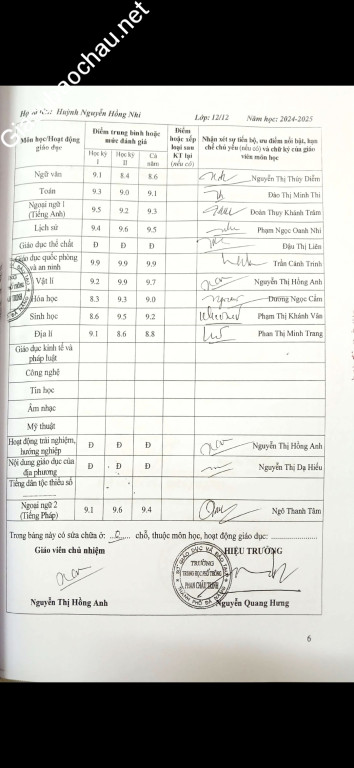 Giasuhaochau.net
Họ và tên: Huỳnh Nguyễn Hồng Nhi Lớp: 12/12 Năm học: 2024-2025
Môn học/Hoạt động giáo dục Điểm trung bình hoặc mức đánh giá Điểm hoặc xếp loại sau KT lại (nếu có) Nhận xét sự tiến bộ, ưu điểm nổi bật, hạn chế chủ yếu (nếu có) và chữ ký của giáo viên môn học
Học kỳ I Học kỳ II Cả năm
Ngữ văn 9.1 8.4 8.6 Nguyễn Thị Thúy Diễm
Toán 9.3 9.0 9.1 Đào Thị Minh Thi
Ngoại ngữ 1 (Tiếng Anh) 9.5 9.2 9.3 Đoàn Thụy Khánh Trâm
Lịch sử 9.4 9.6 9.5 Phạm Ngọc Oanh Nhi
Giáo dục thể chất Đ Đ Đ Đậu Thị Liên
Giáo dục quốc phòng và an ninh 9.9 9.9 9.9 Trần Cảnh Trinh
Vật lí 9.2 9.9 9.7 Nguyễn Thị Hồng Anh
Hóa học 8.3 9.3 9.0 Dương Ngọc Cầm
Sinh học 8.6 9.5 9.2 Phạm Thị Khánh Vân
Địa lí 9.1 8.6 8.8 Phan Thị Minh Trang
Giáo dục kinh tế và pháp luật
Công nghệ
Tin học
Âm nhạc
Mỹ thuật
Hoạt động trải nghiệm, hướng nghiệp Đ Đ Đ Nguyễn Thị Hồng Anh
Nội dung giáo dục của địa phương Đ Đ Đ Nguyễn Thị Dạ Hiếu
Tiếng dân tộc thiểu số
Ngoại ngữ 2 (Tiếng Pháp) 9.1 9.6 9.4 Ngô Thanh Tâm
Trong bảng này có sửa chữa ở: ...0... chỗ, thuộc môn học, hoạt động giáo dục: ....................
Giáo viên chủ nhiệm HIỆU TRƯỞNG
TRƯỜNG
TRUNG HỌC PHỔ THÔNG
PHAN CHÂU TRINH
Nguyễn Thị Hồng Anh Nguyễn Quang Hưng
6